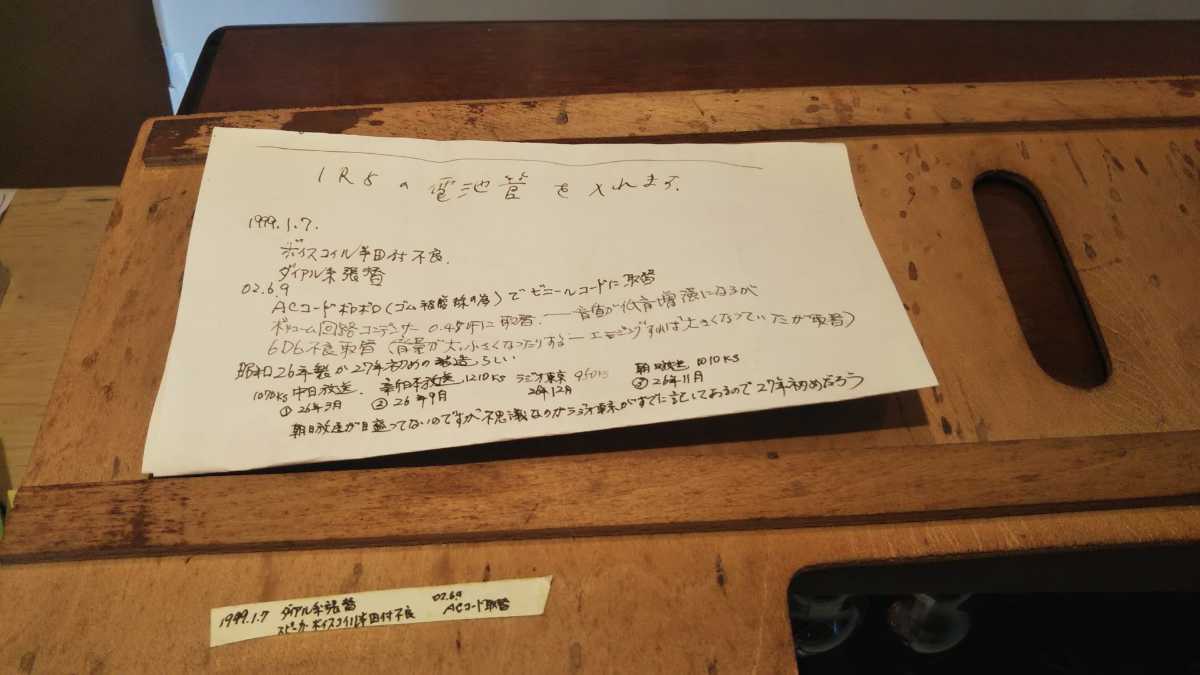 1R5の電池管を入れます.
1999.1.7.
ボイスコイル半田付不良.
ダイアル糸張替
02.6.9
ACコードボロボロ(ゴム被覆の為)でビニールコードに取替
ボリューム回路コンデンサー 0.45μFに取替. ― 音質が低音増強になるが
6D6不良取替(背景が大小さくなったりする ― エージングすれば大きくなっていたが取替)
昭和26年製か27年初めの製造らしい
1070KS 中日放送. 新日本放送 1210KS ラジオ東京 950KS 朝日放送 1010KS
① 26年9月 ② 26年9月 26年12月 ③ 26年11月
朝日放送が目盛ってないのですが不思議なのがラジオ東京がすでに記してあるので27年初めだろう
1999.1.7 ダイアル糸張替 02.6.9
スピーカーボイスコイル半田付不良 ACコード取替